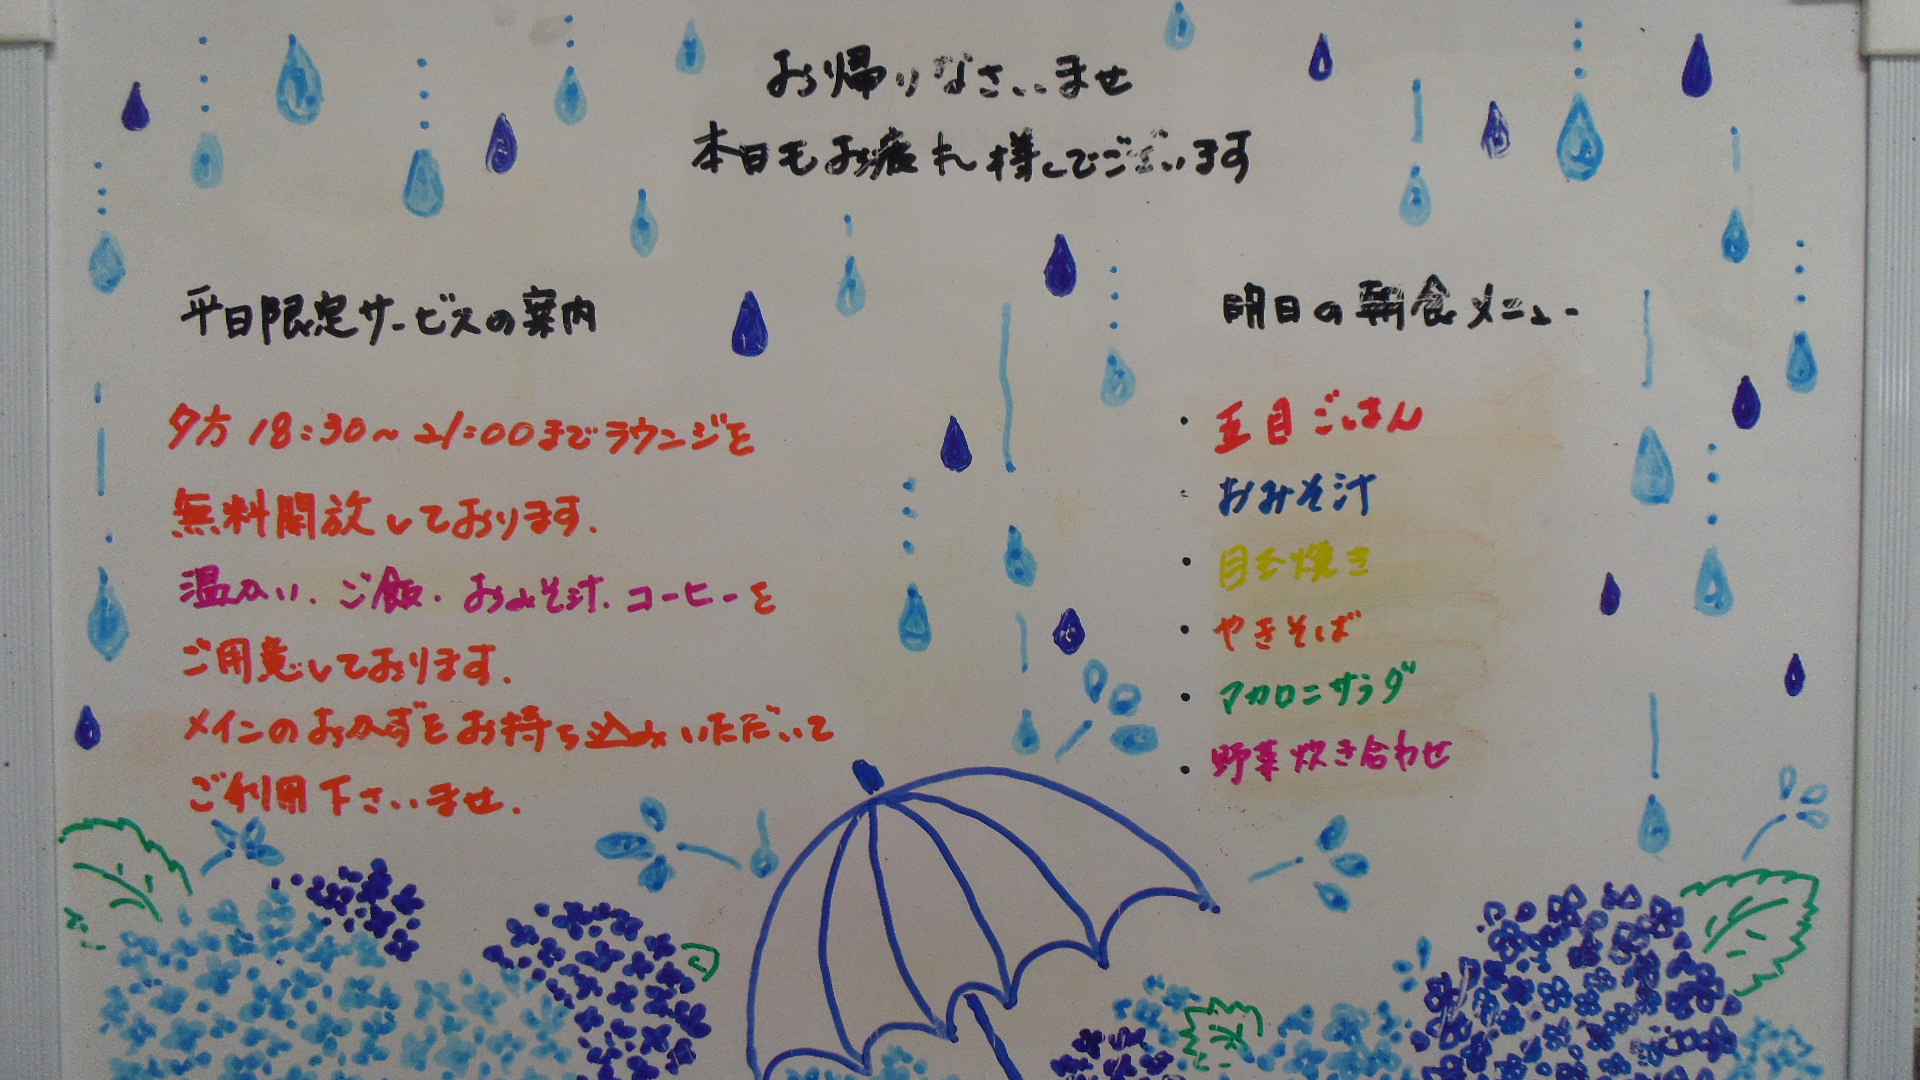 お帰りなさいませ
本日もお疲れ様でございます
平日限定サービスの案内
夕方 18:30～21:00までラウンジを
無料開放しております.
温かい.ご飯.おみそ汁.コーヒーを
ご用意しております.
メインのおかずをお持ち込みいただいて
ご利用下さいませ.
明日の朝食メニュー
・五目ごはん
・おみそ汁
・目玉焼き
・やきそば
・マカロニサラダ
・野菜炊き合わせ